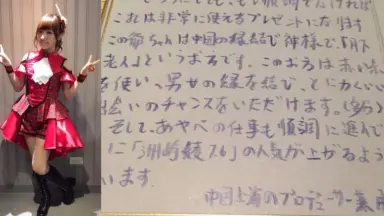 これは非常に使えるプレゼントになります
この爺ちゃんは中国の縁結び神様で、「月下
老人」というようです。このお方は赤い糸
を使い、男女の縁を結び、とにかくいい
出会いのチャンスをいただけます。(多分)
そして、あやぺの仕事も順調に進んで
に「洲崎綾ブル」の人気が上がるよう
います。
中国上海のプロデューサー兼